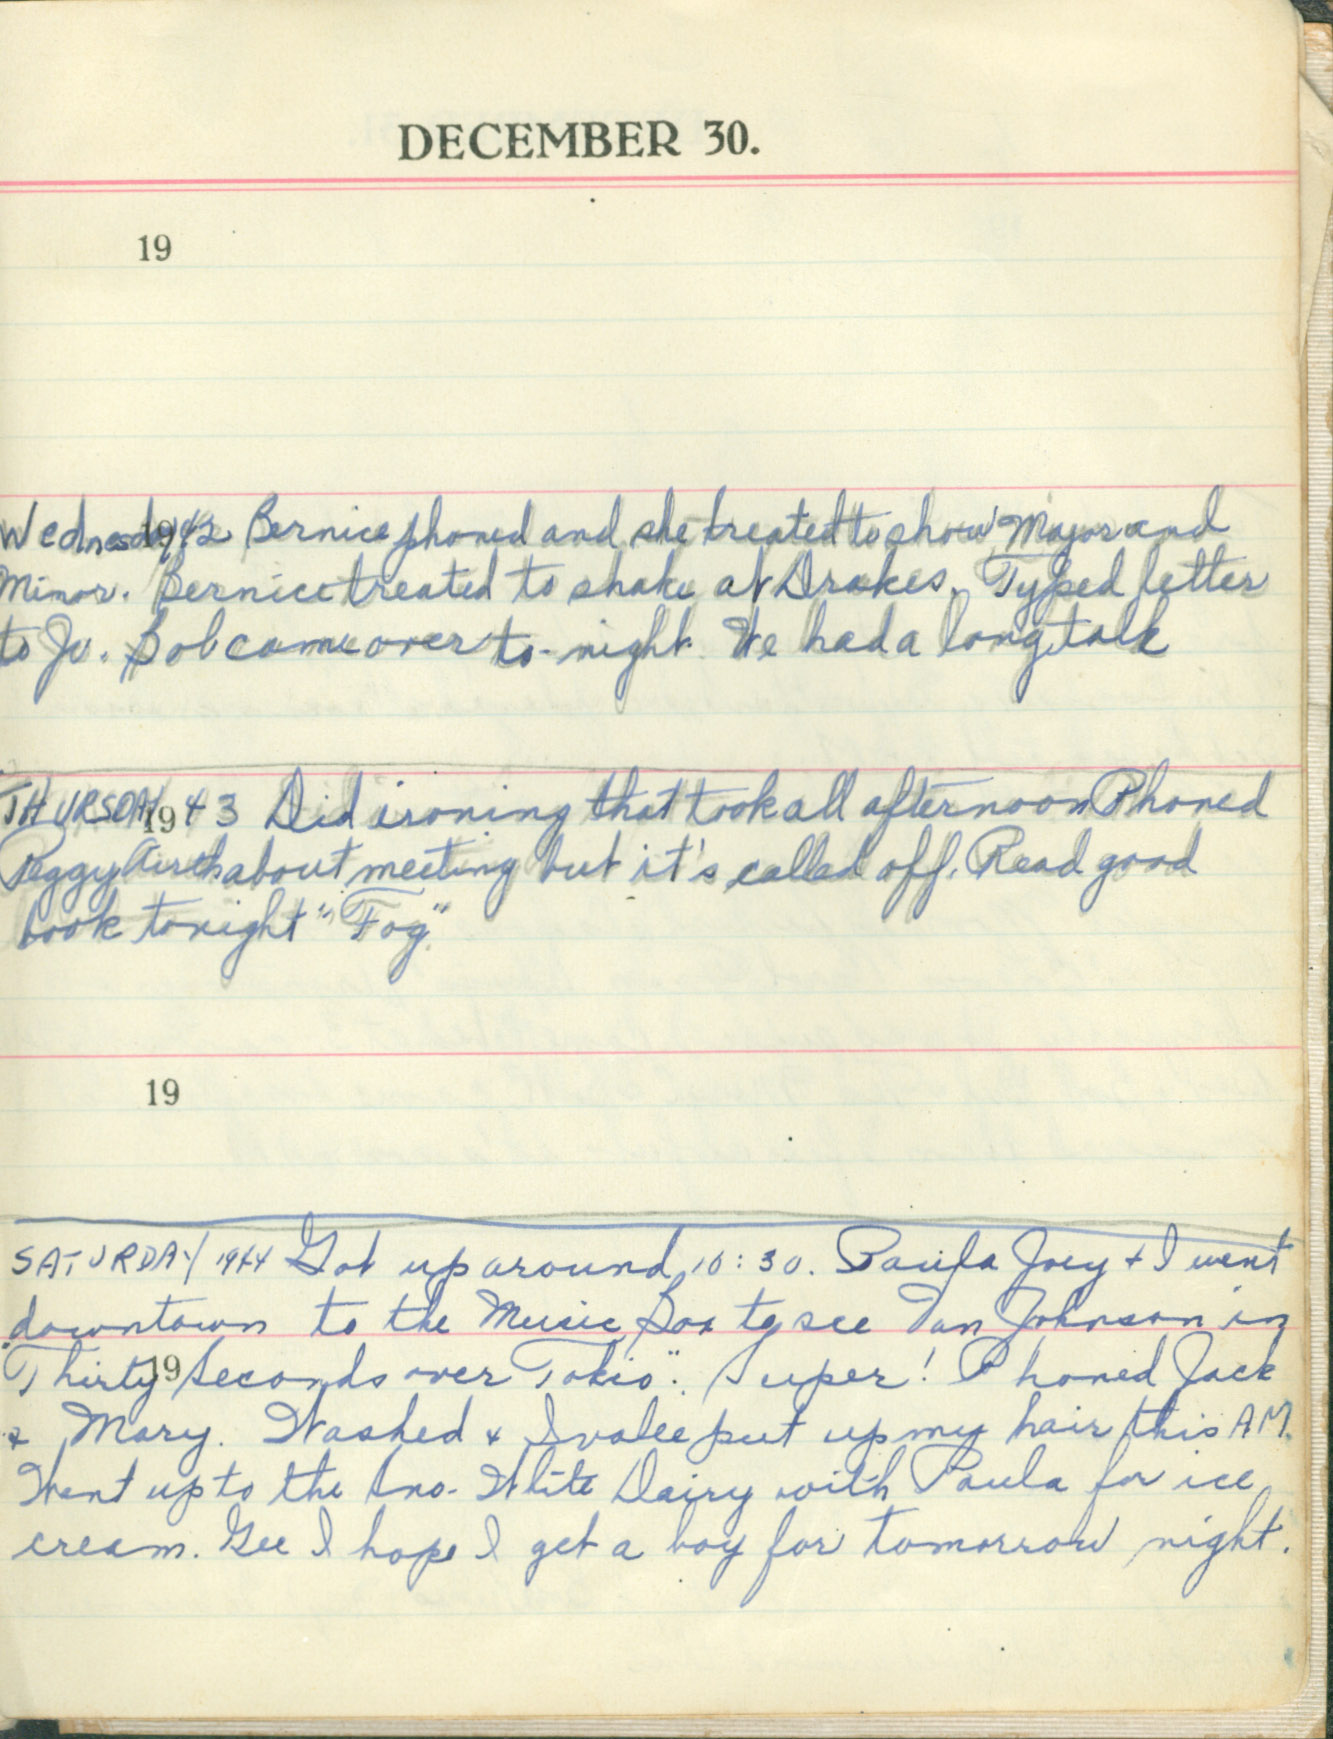 DECEMBER 30.
19
Wednesday 1942 Bernice phoned and she treated to show Major and
Minor. Bernice treated to shake at Drakes. Typed letter
to Jo. Bob came over to-night. We had a long talk
THURSDAY 1943 Did ironing that took all afternoon Phoned
Peggy about meeting but it's called off. Read good
book tonight "Fog"
19
SATURDAY 1944 Got up around 10:30. Paula Joey + I went
downtown to the Music Box to see Van Johnson in
"Thirty Seconds over Tokio". Super! Phoned Jack
+ Mary. Washed + Ivalee put up my hair this A.M.
19
Went up to the Sno-White Dairy with Paula for ice
cream. Gee I hope I get a boy for tomorrow night.